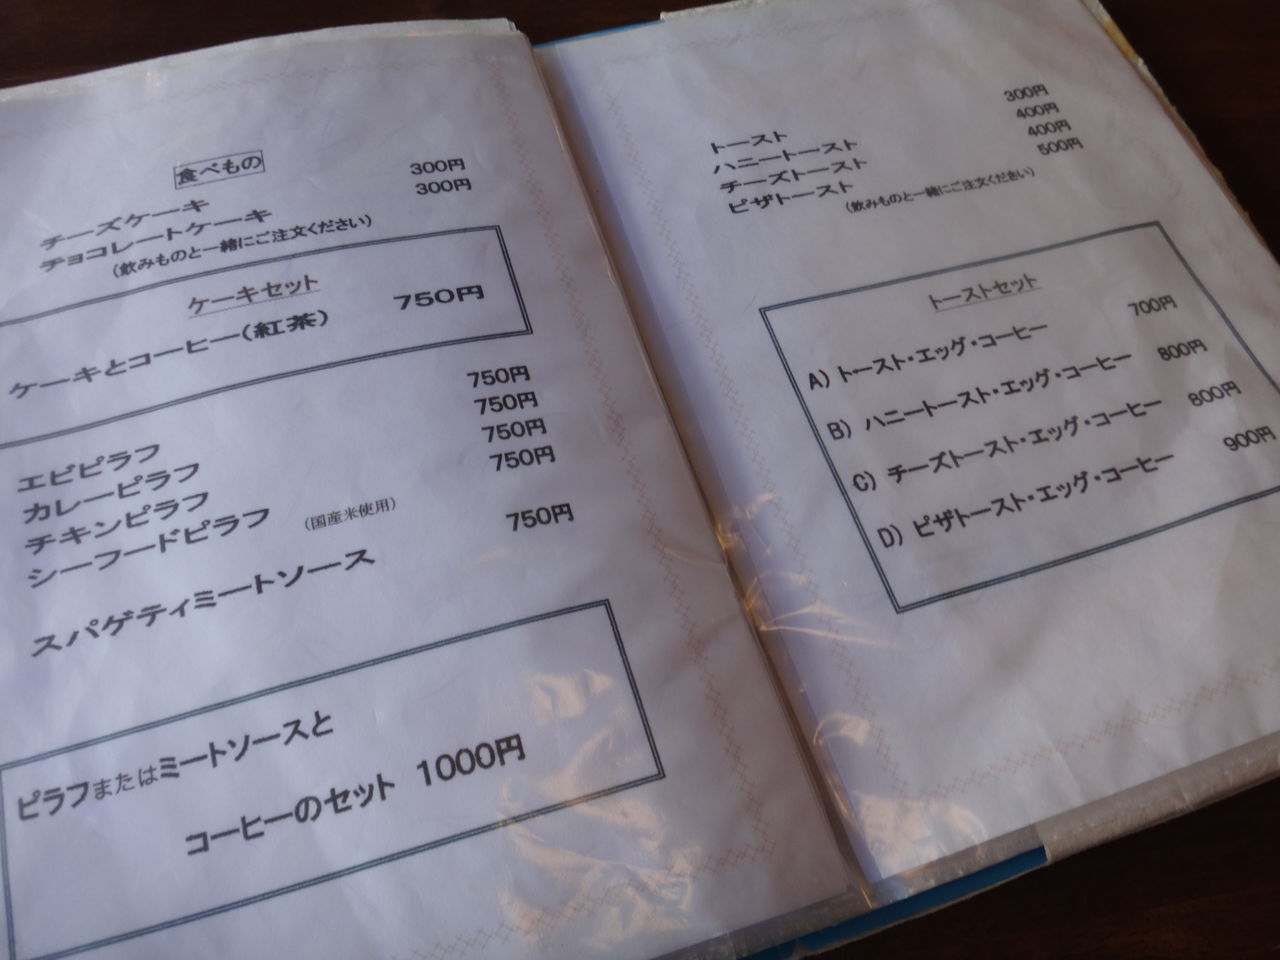 食べもの
チーズケーキ 300円
チョコレートケーキ 300円
（飲みものと一緒にご注文ください）
ケーキセット
ケーキとコーヒー（紅茶） 750円
エビピラフ 750円
カレーピラフ 750円
チキンピラフ 750円
シーフードピラフ 750円
（国産米使用）
スパゲティミートソース 750円
ピラフまたはミートソースと
コーヒーのセット 1000円
トースト 300円
ハニートースト 400円
チーズトースト 400円
ピザトースト 500円
（飲みものと一緒にご注文ください）
トーストセット
A）トースト・エッグ・コーヒー 700円
B）ハニートースト・エッグ・コーヒー 800円
C）チーズトースト・エッグ・コーヒー 800円
D）ピザトースト・エッグ・コーヒー 900円